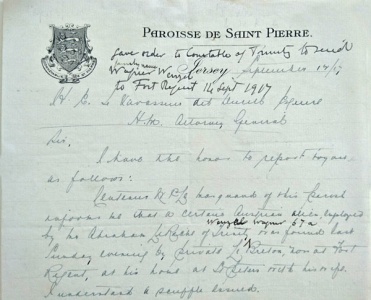 PAROISSE DE SAINT PIERRE.
gave order to Constable of Trinity to send
Wagner Wenzel Jersey, September 17/17
to Fort Regent 14 Sept 1917
H. E. Le Vavasseur dit Durell Esquire
H.M. Attorney General
Sir,
I have the honor to report to you as
as follows:
Centenier
of this Parish
informs me that a certain Austrian alien, employed
Wenzel Wagner 67a
by Mr Abraham of Trinity, was found last
Sunday evening by Private Le Breton, now at Fort
Regent, at his home at St Peters with his wife.
I understand a scuffle ensued.